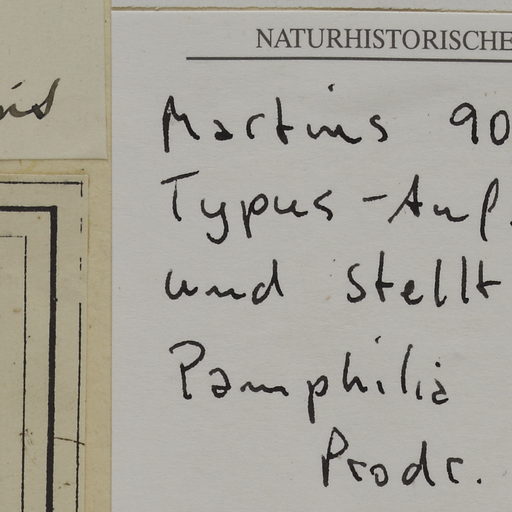 NATURHISTORISCHE
Martius 90
Typus-Auf
und stellt
Pamphilia
Prodr.